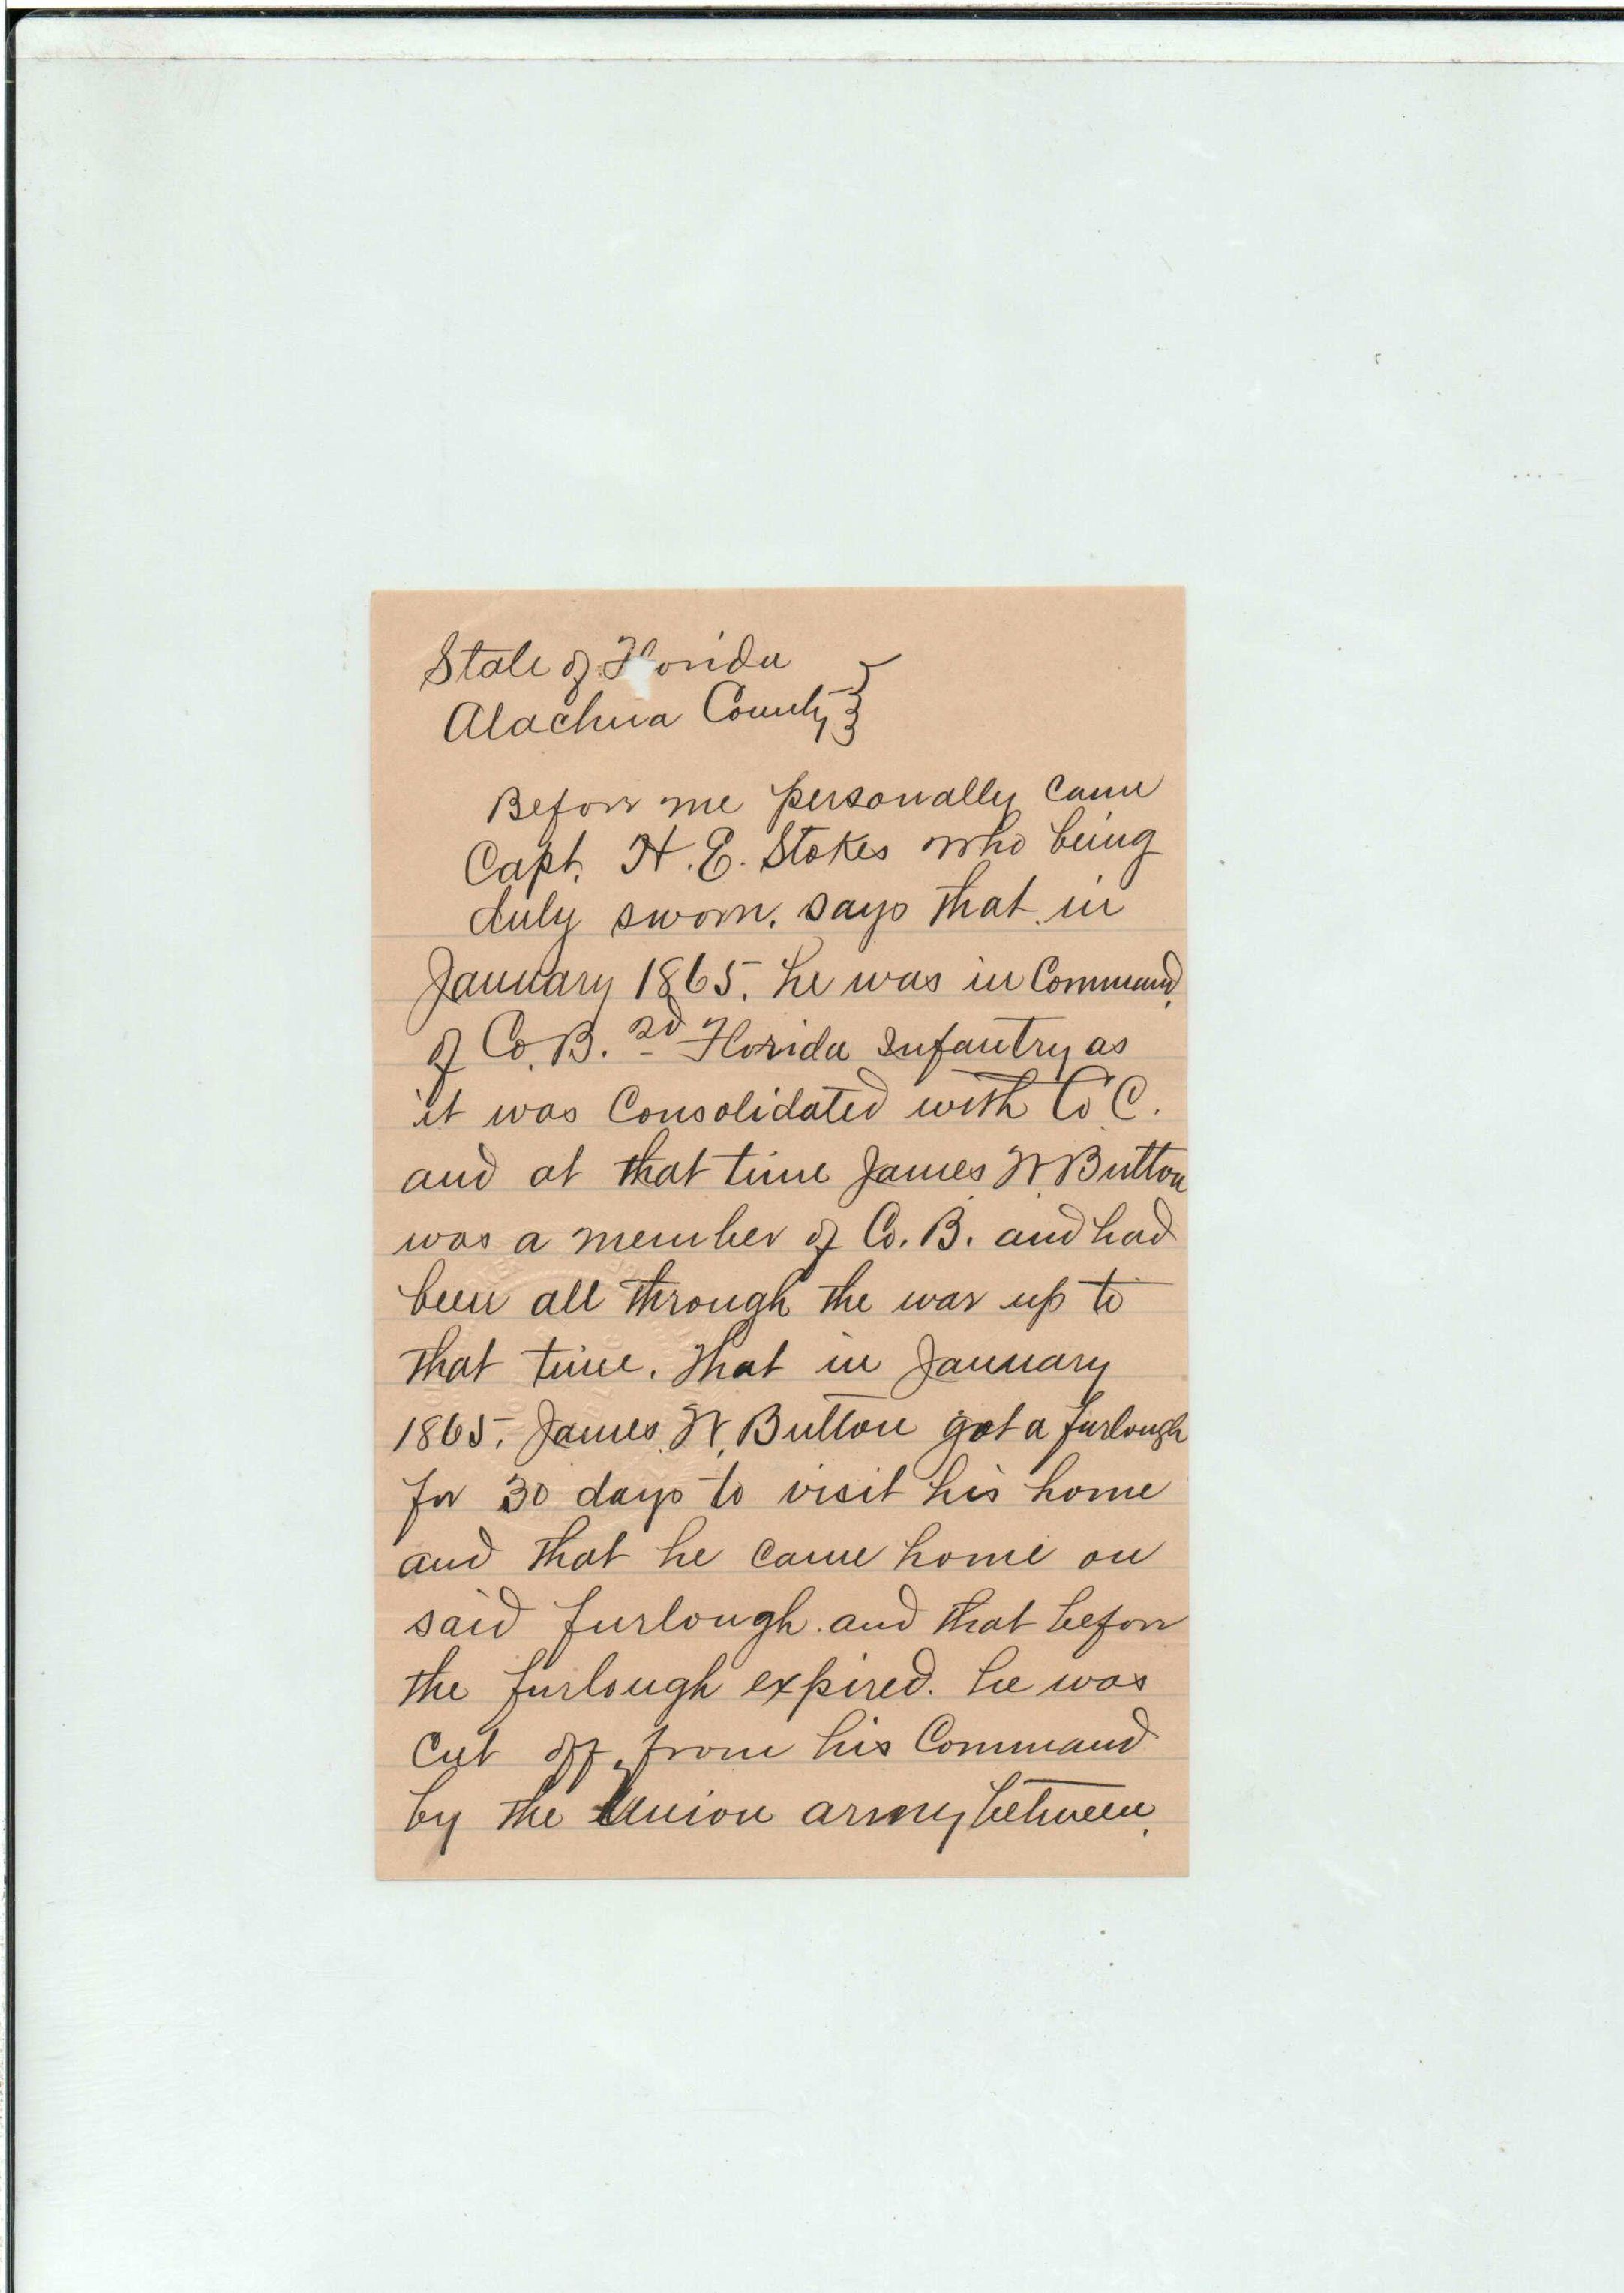 State of Florida
Alachua County
Before me personally came
Capt. H. E. Stokes who being
duly sworn. says that in
January 1865. he was in Command
of Co. B. 2d Florida Infantry as
it was Consolidated with Co C.
and at that time James W. Button
was a member of Co. B. and had
been all through the war up to
that time. That in January
1865. James W. Button got a furlough
for 30 days to visit his home
and that he came home on
said furlough. and that before
the furlough expired. he was
cut off from his Command
by the Union army between.